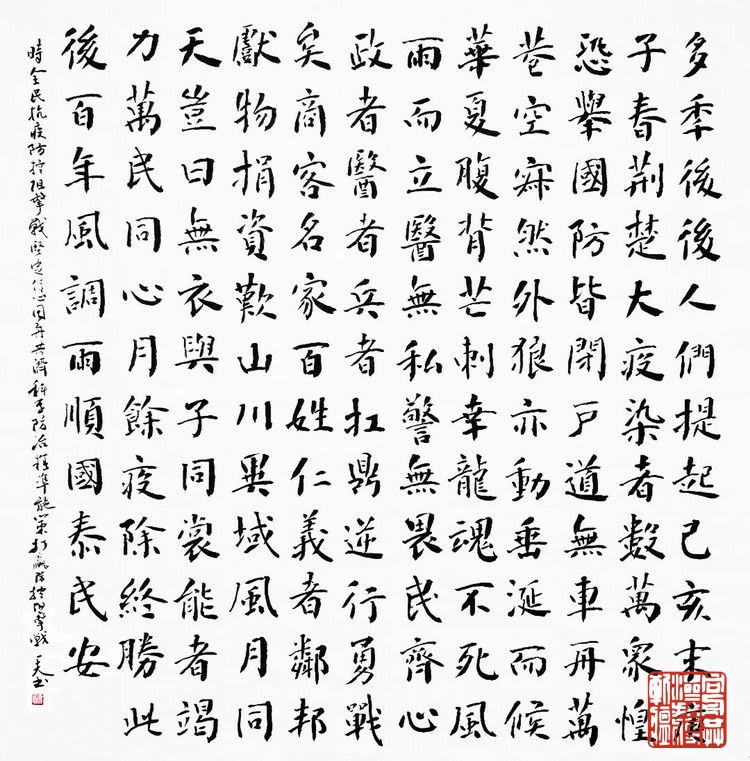 多秊後後人們提起己亥末庚
子春荆楚大疫染者數萬眾惶
恐舉國防皆閉戸道無車再萬
巷空寂然外狼亦動垂涎而候
華夏腹背芒刺幸龍魂不死風
雨而立醫無私警無畏民齊心
政者醫者兵者扛鼎逆行勇戰
矣商客名家百姓仁義者鄰邦
獻物捐資歎山川異域風月同
天豈曰無衣與子同裳能者竭
力萬民同心月餘疫除終勝此
後百年風調雨順國泰民安
時全民抗疫防控阻擊戰堅定信心同舟共濟科學防治精準施策打贏防控阻擊戰